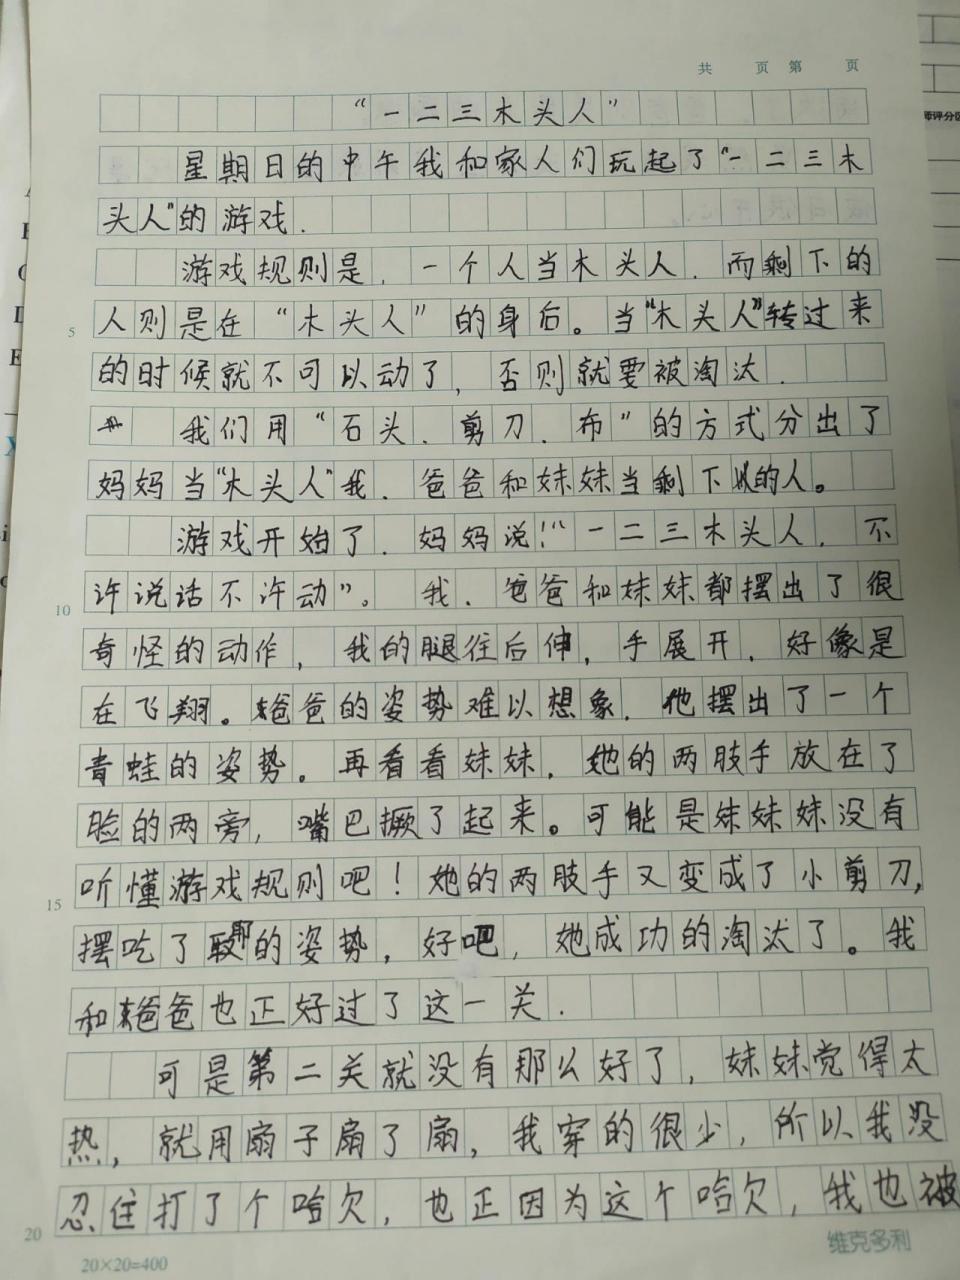 共 页 第 页
师评分区
“一二三木头人”
星期日的中午我和家人们玩起了“一二三木
头人”的游戏.
游戏规则是.一个人当木头人.而剩下的
5 人则是在“木头人”的身后。当“木头人”转过来
的时候就不可以动了,否则就要被淘汰.
我们用“石头.剪刀.布”的方式分出了
妈妈当“木头人”我.爸爸和妹妹当剩下的人。
游戏开始了.妈妈说!“一二三木头人.不
10 许说话不许动”。我.爸爸和妹妹都摆出了很
奇怪的动作,我的腿往后伸,手展开.好像是
在飞翔。爸爸的姿势难以想象.他摆出了一个
青蛙的姿势。再看看妹妹.她的两肢手放在了
脸的两旁,嘴巴撅了起来。可能是妹妹妹没有
15 听懂游戏规则吧!她的两肢手又变成了小剪刀,
摆吃了耶的姿势,好吧,她成功的淘汰了。我
和爸爸也正好过了这一关.
可是第二关就没有那么好了,妹妹觉得太
热,就用扇子扇了扇,我穿的很少,所以我没
20 忍住打了个哈欠,也正因为这个哈欠,我也被
20×20=400
维克多利